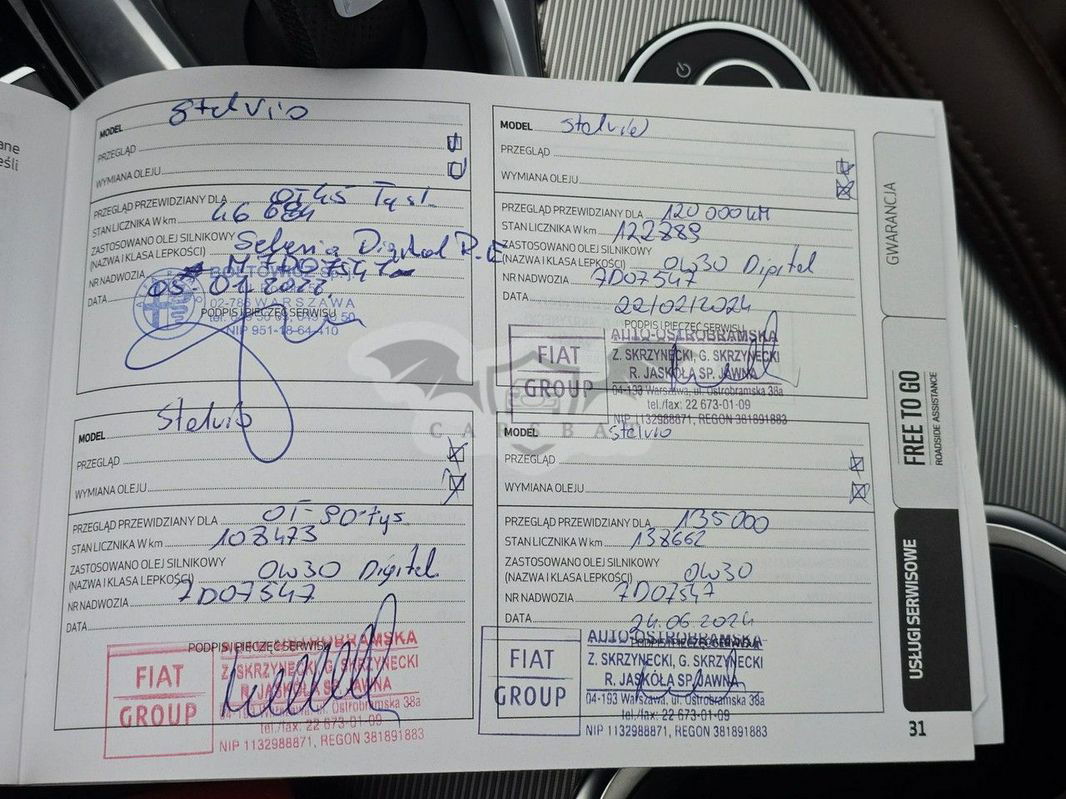 ane
eśli
MODEL Stelvio
PRZEGLĄD
WYMIANA OLEJU
PRZEGLĄD PRZEWIDZIANY DLA OT 45 Tyśl.
STAN LICZNIKA W km 46 684
ZASTOSOWANO OLEJ SILNIKOWY
(NAZWA I KLASA LEPKOŚCI) Selenia Digital P.E
NR NADWOZIA M7D07547
DATA 05.01.2022
02-786 WARSZAWA
PODPIS I PIECZĘĆ SERWISU
NIP 951-18-64-410
MODEL Stelvio
PRZEGLĄD
WYMIANA OLEJU
PRZEGLĄD PRZEWIDZIANY DLA 120 000 KM
STAN LICZNIKA W km 122889
ZASTOSOWANO OLEJ SILNIKOWY
(NAZWA I KLASA LEPKOŚCI) 0W30 Digital
NR NADWOZIA 7D07547
DATA 22/02/2024
PODPIS I PIECZĘĆ SERWISU
FIAT
GROUP
AUTO-OSTROBRAMSKA
Z. SKRZYNECKI, G. SKRZYNECKI
R. JASKÓŁA SP. JAWNA
04-193 Warszawa, ul. Ostrobramska 38a
tel./fax: 22 673-01-09
NIP 1132988871, REGON 381891883
CARSBAT
MODEL Stelvio
PRZEGLĄD
WYMIANA OLEJU
PRZEGLĄD PRZEWIDZIANY DLA OT-90-tys
STAN LICZNIKA W km 108473
ZASTOSOWANO OLEJ SILNIKOWY
(NAZWA I KLASA LEPKOŚCI) 0W30 Digital
NR NADWOZIA 7D07547
DATA
PODPIS I PIECZĘĆ SERWISU
FIAT
GROUP
OSTROBRAMSKA
Z. SKRZYNECKI, G. SKRZYNECKI
R. JASKÓŁA SP. JAWNA
04-193 Warszawa, ul. Ostrobramska 38a
tel./fax: 22 673-01-09
NIP 1132988871, REGON 381891883
MODEL Stelvio
PRZEGLĄD
WYMIANA OLEJU
PRZEGLĄD PRZEWIDZIANY DLA 135000
STAN LICZNIKA W km 138662
ZASTOSOWANO OLEJ SILNIKOWY
(NAZWA I KLASA LEPKOŚCI) 0W30
NR NADWOZIA 7D07547
DATA 24.06.2024
FIAT
GROUP
AUTO-OSTROBRAMSKA
Z. SKRZYNECKI, G. SKRZYNECKI
R. JASKÓŁA SP. JAWNA
04-193 Warszawa, ul. Ostrobramska 38a
tel./fax: 22 673-01-09
NIP 1132988871, REGON 381891883
GWARANCJA
FREE TO GO
ROADSIDE ASSISTANCE
USŁUGI SERWISOWE
31